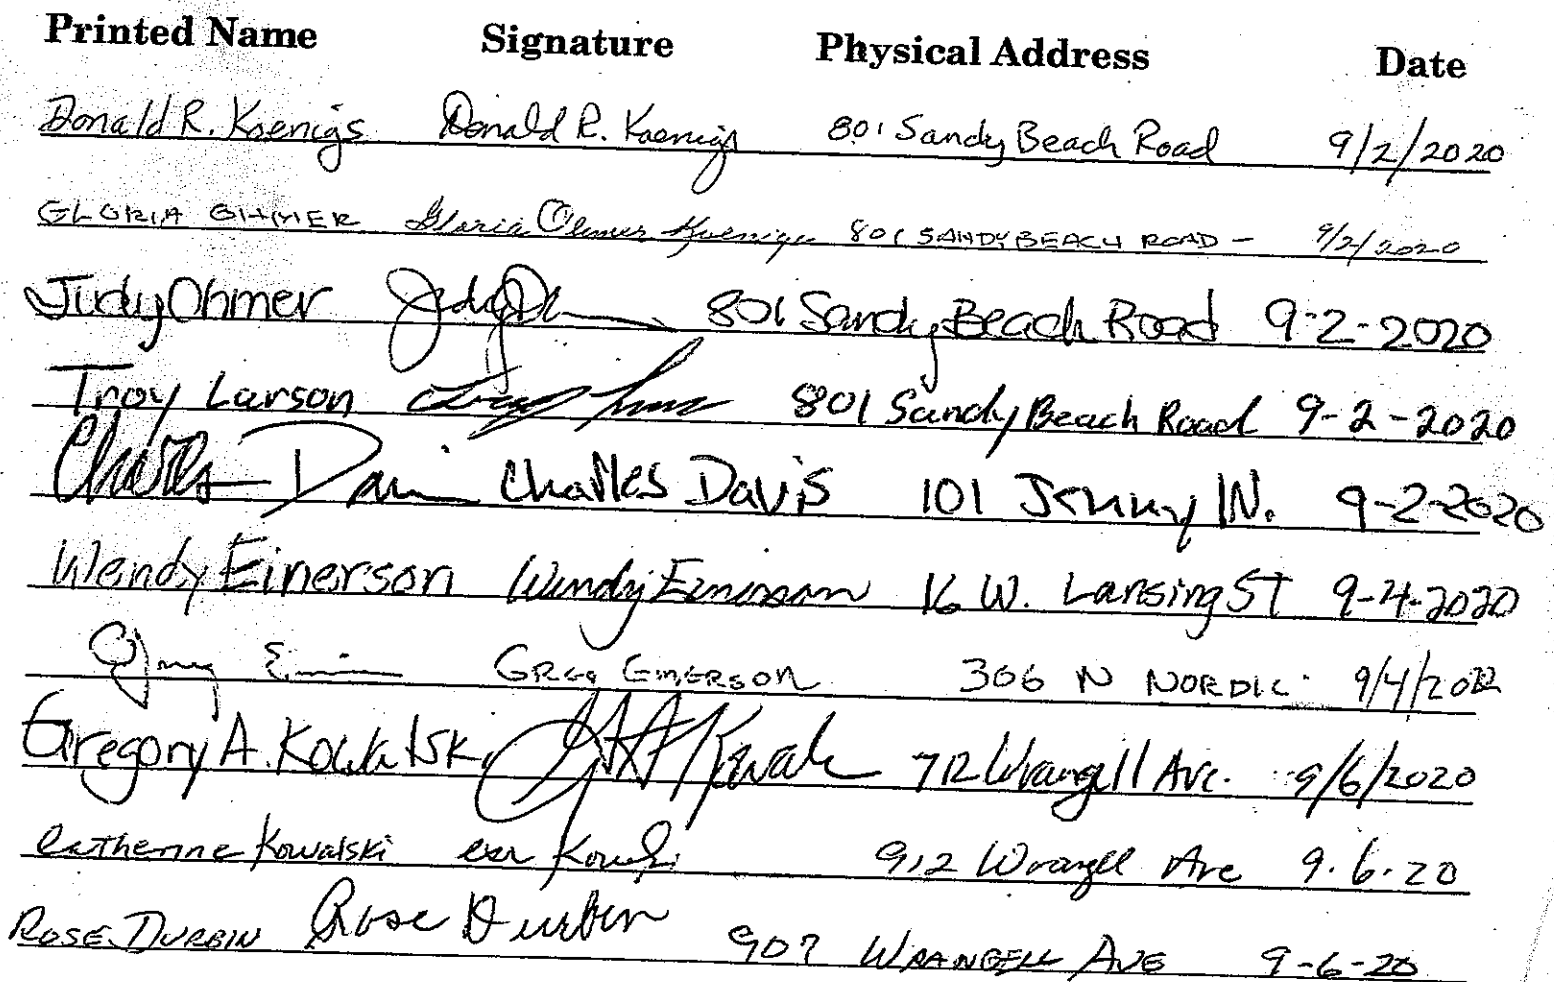 Printed Name Signature Physical Address Date
Donald R. Koenigs Donald R. Koenigs 801 Sandy Beach Road 9/2/2020
GLORIA OHMER Gloria Ohmer Koenigs 801 SANDY BEACH ROAD - 9/2/2020
Judy Ohmer Judy 801 Sandy Beach Road 9-2-2020
Troy Larson Troy 801 Sandy Beach Road 9-2-2020
Charles Davis Charles Davis 101 Jenny IN. 9-2-2020
Wendy Einerson Wendy Einerson 16 W. Lansing ST 9-4-2020
GREG EINERSON 306 N NORDIC 9/4/2020
Gregory A. Kowalski Kowalski Wrangell Ave. 9/6/2020
Catherine Kowalski Kowalski 912 Wrangell Ave 9.6.20
ROSE DURBIN Rose Durbin 907 WRANGELL AVE 9-6-20